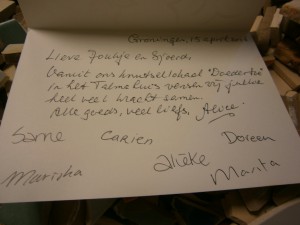 Groningen, 19 april
Lieve Foukje en Sjoerd,
Vanuit ons knutsellokaal "Doedertui"
in het Talmahuis wensen wij jullie
heel veel kracht samen.
Alle goeds, veel liefs, Alice.
Sanne Carien Doreen
Mariska Alieke Marita